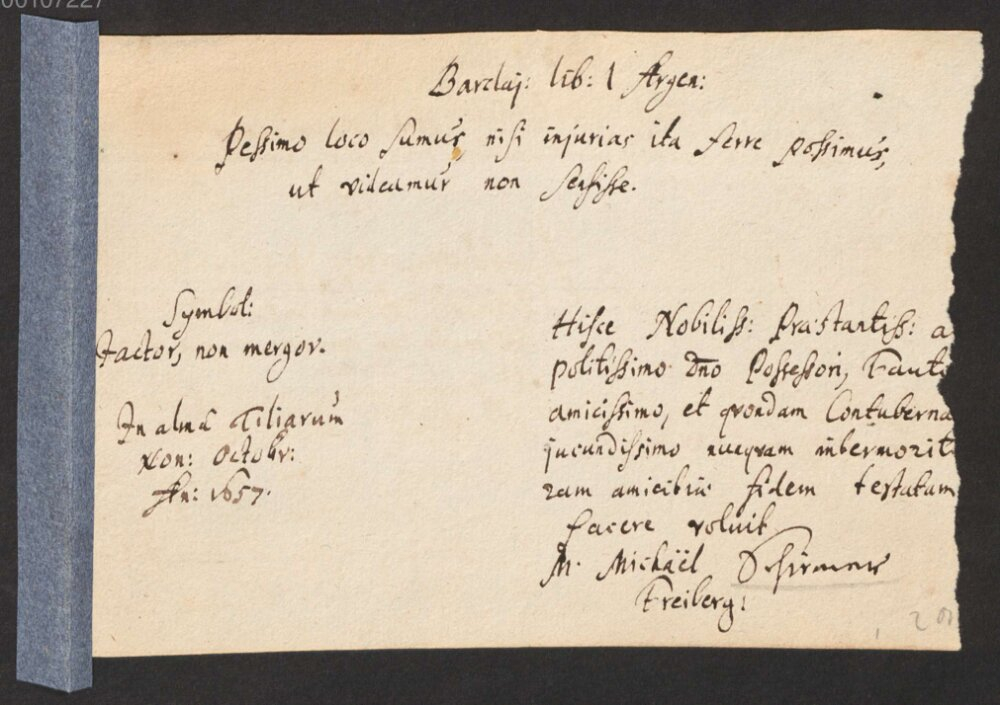 00107227
Barclaj: lib: 1 Argen:
Pessimo loco sumus, nisi injurias ita ferre possimus,
ut videamur non sensisse.
Symbol:
Jactor, non mergor.
In alma Tiliarum
Non: Octobr:
An: 1657.
Hisce Nobiliss: Præstantiss: a
politissimo dno Possessori, Fauto
amicissimo, et qvondam Contuberna
jucundissimo nunqvam intermorit
ram amicitiæ fidem testatam
facere voluit
M. Michaël Schirmer
Freiberg: